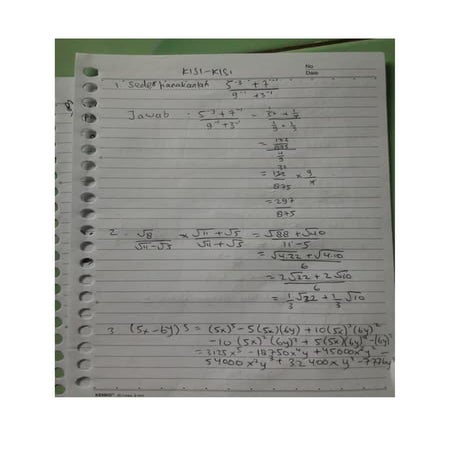 KISI-KISI
No
Date
1. Sederhanakanlah (5⁻³ + 7⁻¹)/(9⁻¹ + 3⁻¹)
Jawab : (5⁻³ + 7⁻¹)/(9⁻¹ + 3⁻¹) = (1/5³ + 1/7)/(1/9 + 1/3)
= (132/875)/(4/9)
= 132/875 × 9/4
= 297/875
2. √8/(√11-√5) × (√11+√5)/(√11+√5) = (√88 + √40)/(11-5)
= (√4.22 + √4.10)/6
= (2√22 + 2√10)/6
= 1/3 √22 + 1/3 √10
3. (5x-6y)⁵ = (5x)⁵ - 5(5x)⁴(6y) + 10(5x)³(6y)²
-10 (5x)²(6y)³ + 5(5x)(6y)⁴ - (6y)⁵
= 3125x⁵ - 18750x⁴y + 45000x³y² -
54000x²y³ + 32400xy⁴ - 7776y⁵